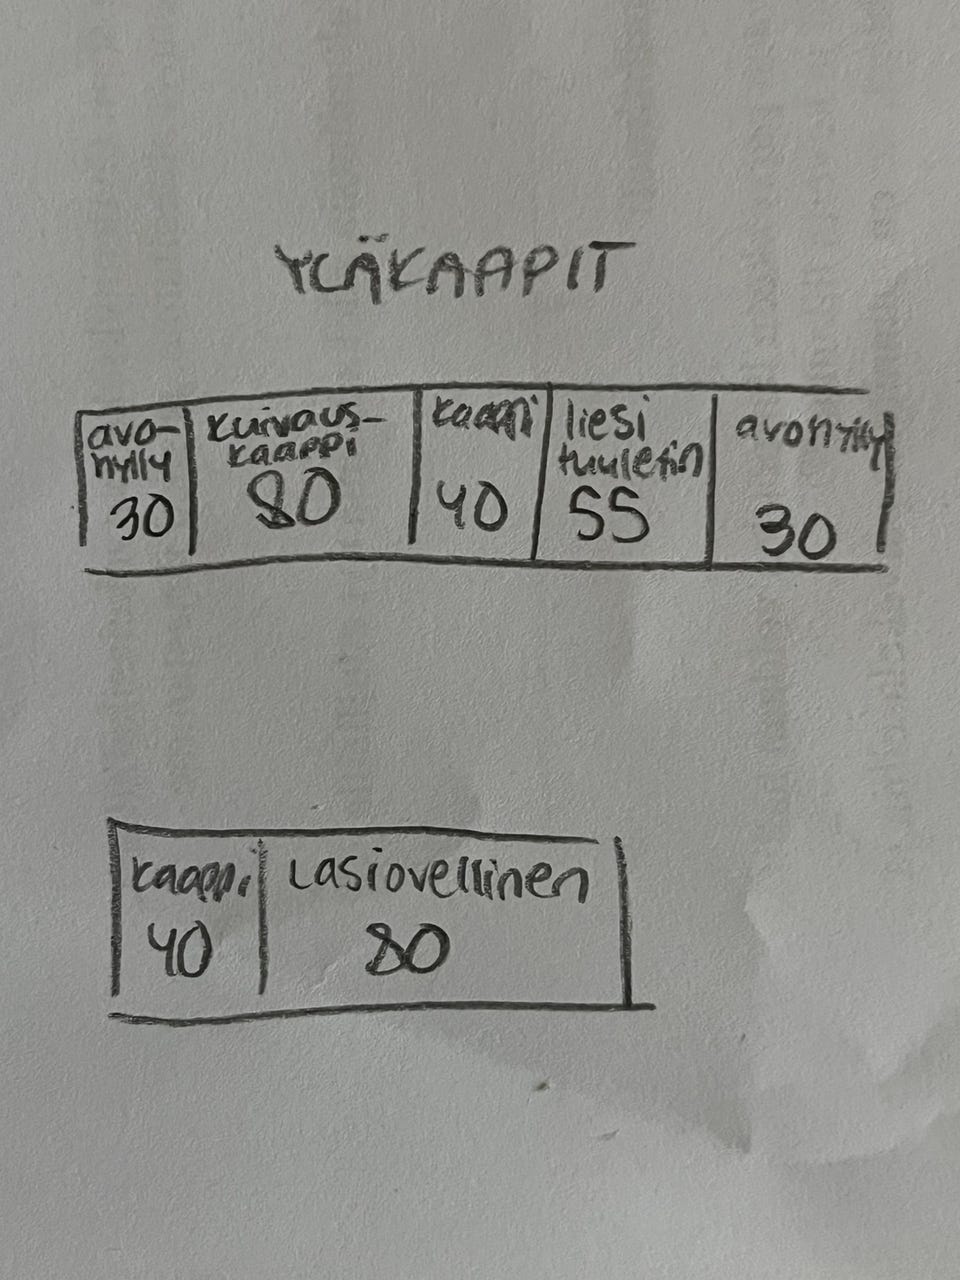 YLÄKAAPIT
avo-
hylly
30
kuivaus-
kaappi
80
kaappi
40
liesi
tuuletin
55
avohylly
30
kaappi
40
Lasiovellinen
80